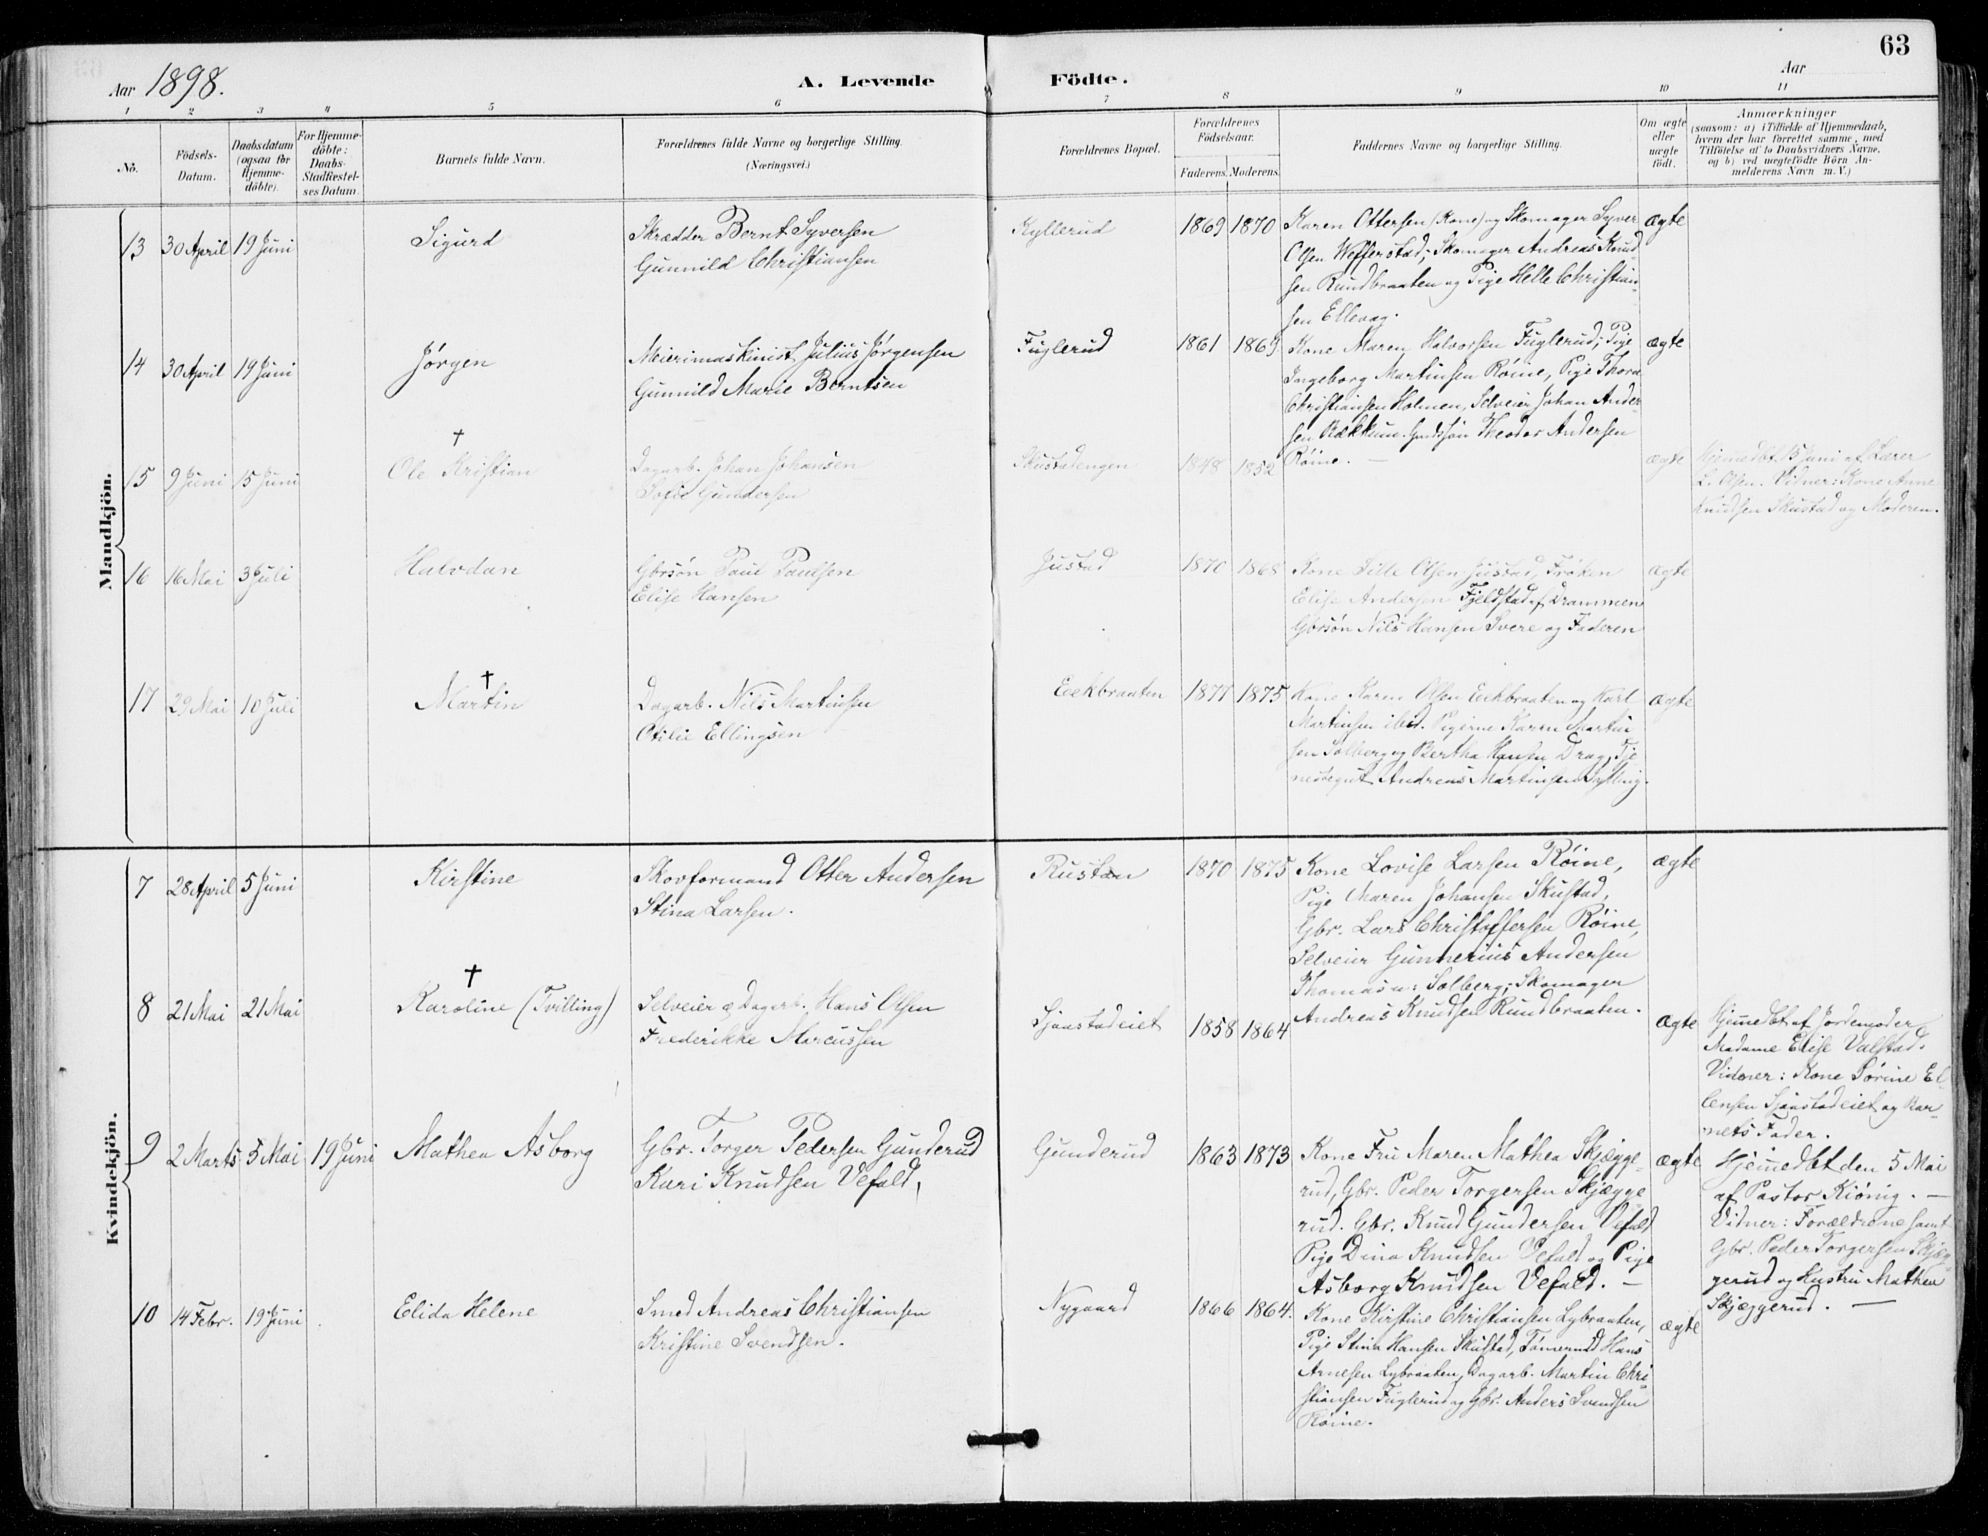 63
Aar 1898.
A. Levende Födte.
Aar
1 2 3 4 5 6 7 8 9 10 11
No.
Födsels-
Datum.
Daabsdatum
(ogsaa for
Hjemme-
döbte).
For Hjemme-
döbte:
Daabs-
Stadfæstel-
ses Datum.
Barnets fulde Navn.
Forældrenes fulde Navne og borgerlige Stilling.
(Næringsvei.)
Forældrenes Bopæl.
Forældrenes
Födselsaar.
Faderens. Moderens.
Faddernes Navne og borgerlige Stilling.
Om ægte
eller
uægte
født.
Anmærkninger
(saasom: a) i Tilfælde af Hjemmedaab,
hvem der har forrettet samme, med
Tilföielse af to Daabsvidners Navne,
og b) ved uægtefödte Börn An-
melderens Navn m. V.)
Mandkjön.
13 30 April 19 Juni
Sigurd
Skrædder Bernt Syversen
Gunnild Christiansen
Kyllerud
1869 1870
Karen Ottersen (Kone) og Skomager Syver
Olsen Wefferstad; Skomager Andreas Knud-
sen Rundbraaten og Pige Helle Christian-
sen Ellevag.
ægte
14 30 April 19 Juni
Jörgen
Meierimaskinist Julius Jørgensen
Gunnild Marie Berntsen
Fuglerud
1861 1869
Kone Maren Halvorsen Fuglerud; Pige
Ingeborg Martinsen Röine, Pige Thora
Christiansen Holmen, Selveier Johan Ander-
sen Bækkum. Theodor Andersen
Röine. —
ægte
15 9 Juni 15 Juni
†
Ole Kristian
Dagarb. Johan Johansen
Sofie Gundersen
Skustadengen
1848 1852
ægte
Hjemmedbt 15 Juni af Lærer
L. Olsen. Vidner: Kone Anne
Knudsen Skustad og Moderen.
16 16 Mai 3 Juli
Halvdan
Gbrsön Paul Paulsen
Elise Hansen
Justad
1870 1868
Kone Lille Olsen Justad, Fröken
Elise Andersen Fjeldstad af Drammen
Gbrsön Nils Hansen Svere og Faderen
ægte
17 29 Mai 10 Juli
†
Martin
Dagarb. Nils Martinsen
Otilie Ellingsen
Eekbraaten
1877 1875
Kone Karen Olsen Eekbraaten og Karl
Martinsen ibid. Pigerne Karen Martin
sen Solberg og Bertha Hansen Drag, Tje
nestegut Andreas Martinsen Sylling.
ægte
Kvindekjön.
7 28 April 5 Juni
Kirstine
Skovformand Otter Andersen
Stina Larsen.
Rustan
1870 1875
Kone Lovise Larsen Röine,
Pige Maren Johansen Skustad,
Gbr. Lars Christoffersen Röine,
Selveier Gunnerius Andersen
Solberg; Skomager
Andreas Knudsen Rundbraaten.
ægte
8 21 Mai 21 Mai
†
Karoline (Tvilling)
Selveier & Dagarb. Hans Olsen
Frederikke Marcussen
Sjaastadeiet
1858 1864
ægte
Hjemmedbt af Jordemoder
Madame Elise Valstad.
Vidner: Kone Sörine El-
lensen Sjaastadeiet og Bar-
nets Fader.
9 2 Marts 5 Mai 19 Juni
Mathea Asborg
Gbr. Torger Pedersen Gunderud
Kari Knudsen Vefald,
Gunderud
1863 1873
Kone Fru Maren Mathea Skjægge-
rud, Gbr. Peder Torgersen Skjægge
rud. Gbr. Knud Gundersen Vefald
Pige Dina Knudsen Vefald og Pige
Asborg Knudsen Vefald. —
ægte
Hjemmedbt den 5 Mai
af Pastor Kiönig. —
Vidner: Forældrene samt
Gbr. Peder Torgersen Skjæg-
gerud og Hustru Mathea
Skjæggerud. —
10 14 Febr. 19 Juni
Elida Helene
Smed Andreas Christiansen
Kristine Svendsen.
Nygaard
1866 1864.
Kone Kirstine Christiansen Lybraaten,
Pige Stina Hansen Skustad, Tömermd Hans
Arnesen Lybraaten, Dagarb. Martin Chri-
stiansen Fuglerud og Gbr. Anders Svendsen
Röine.
ægte